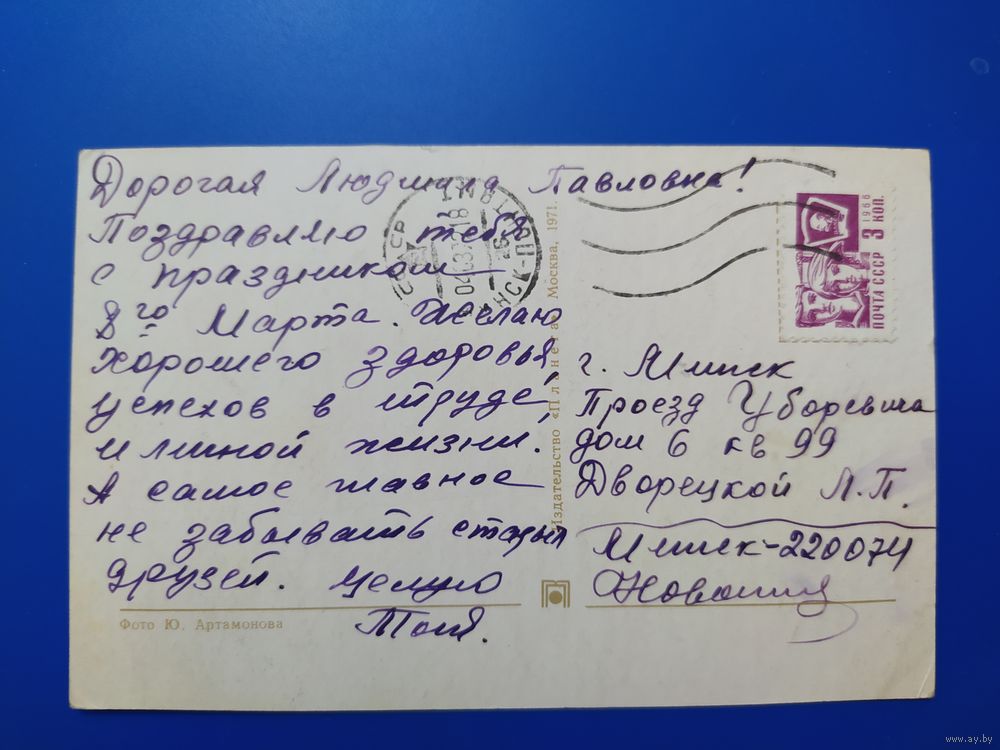 Дорогая Людмила Павловна!
Поздравляю тебя
с праздником
8го Марта. Желаю
хорошего здоровья,
успехов в труде,
и личной жизни.
А самое главное
не забывать старых
друзей. Целую
Тоня.
Фото Ю. Артамонова
Издательство «Планета» Москва, 1971.
1966
3 коп.
ПОЧТА СССР
г. Минск
Проезд Уборевича
дом 6 кв 99
Дворецкой Л.П.
Минск-220074
www.ay.by